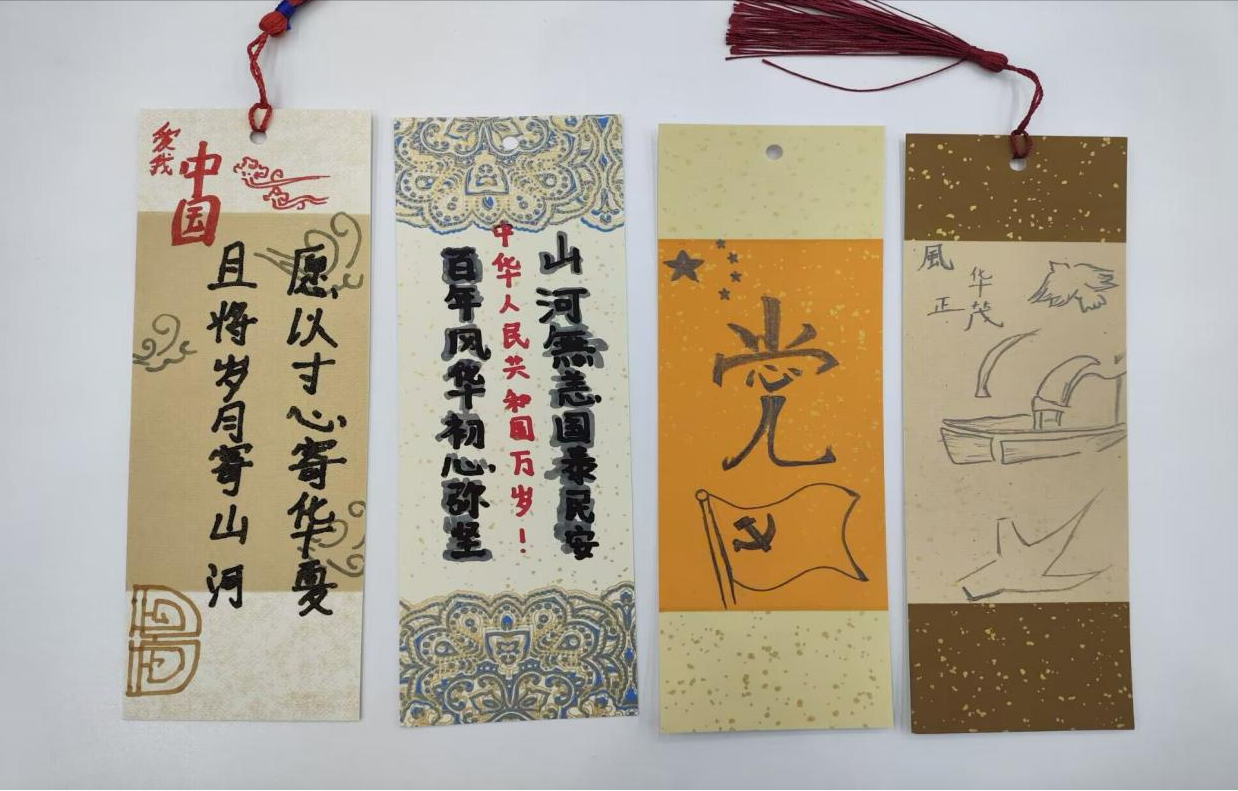 爱我
中国
愿以寸心寄华夏
且将岁月寄山河
山河無恙国泰民安
中华人民共和国万岁！
百年风华初心弥坚
党
風华
正茂